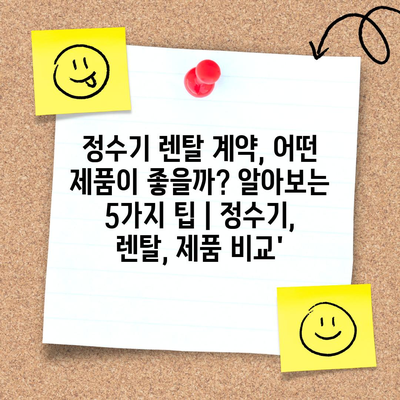 정수기 렌탈 계약, 어떤
제품이 좋을까? 알아보는
5가지 팁 | 정수기,
렌탈, 제품 비교'